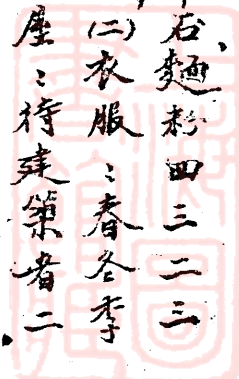 石麵粉四三二三
(二)衣服：春冬季
塵：待建築者二